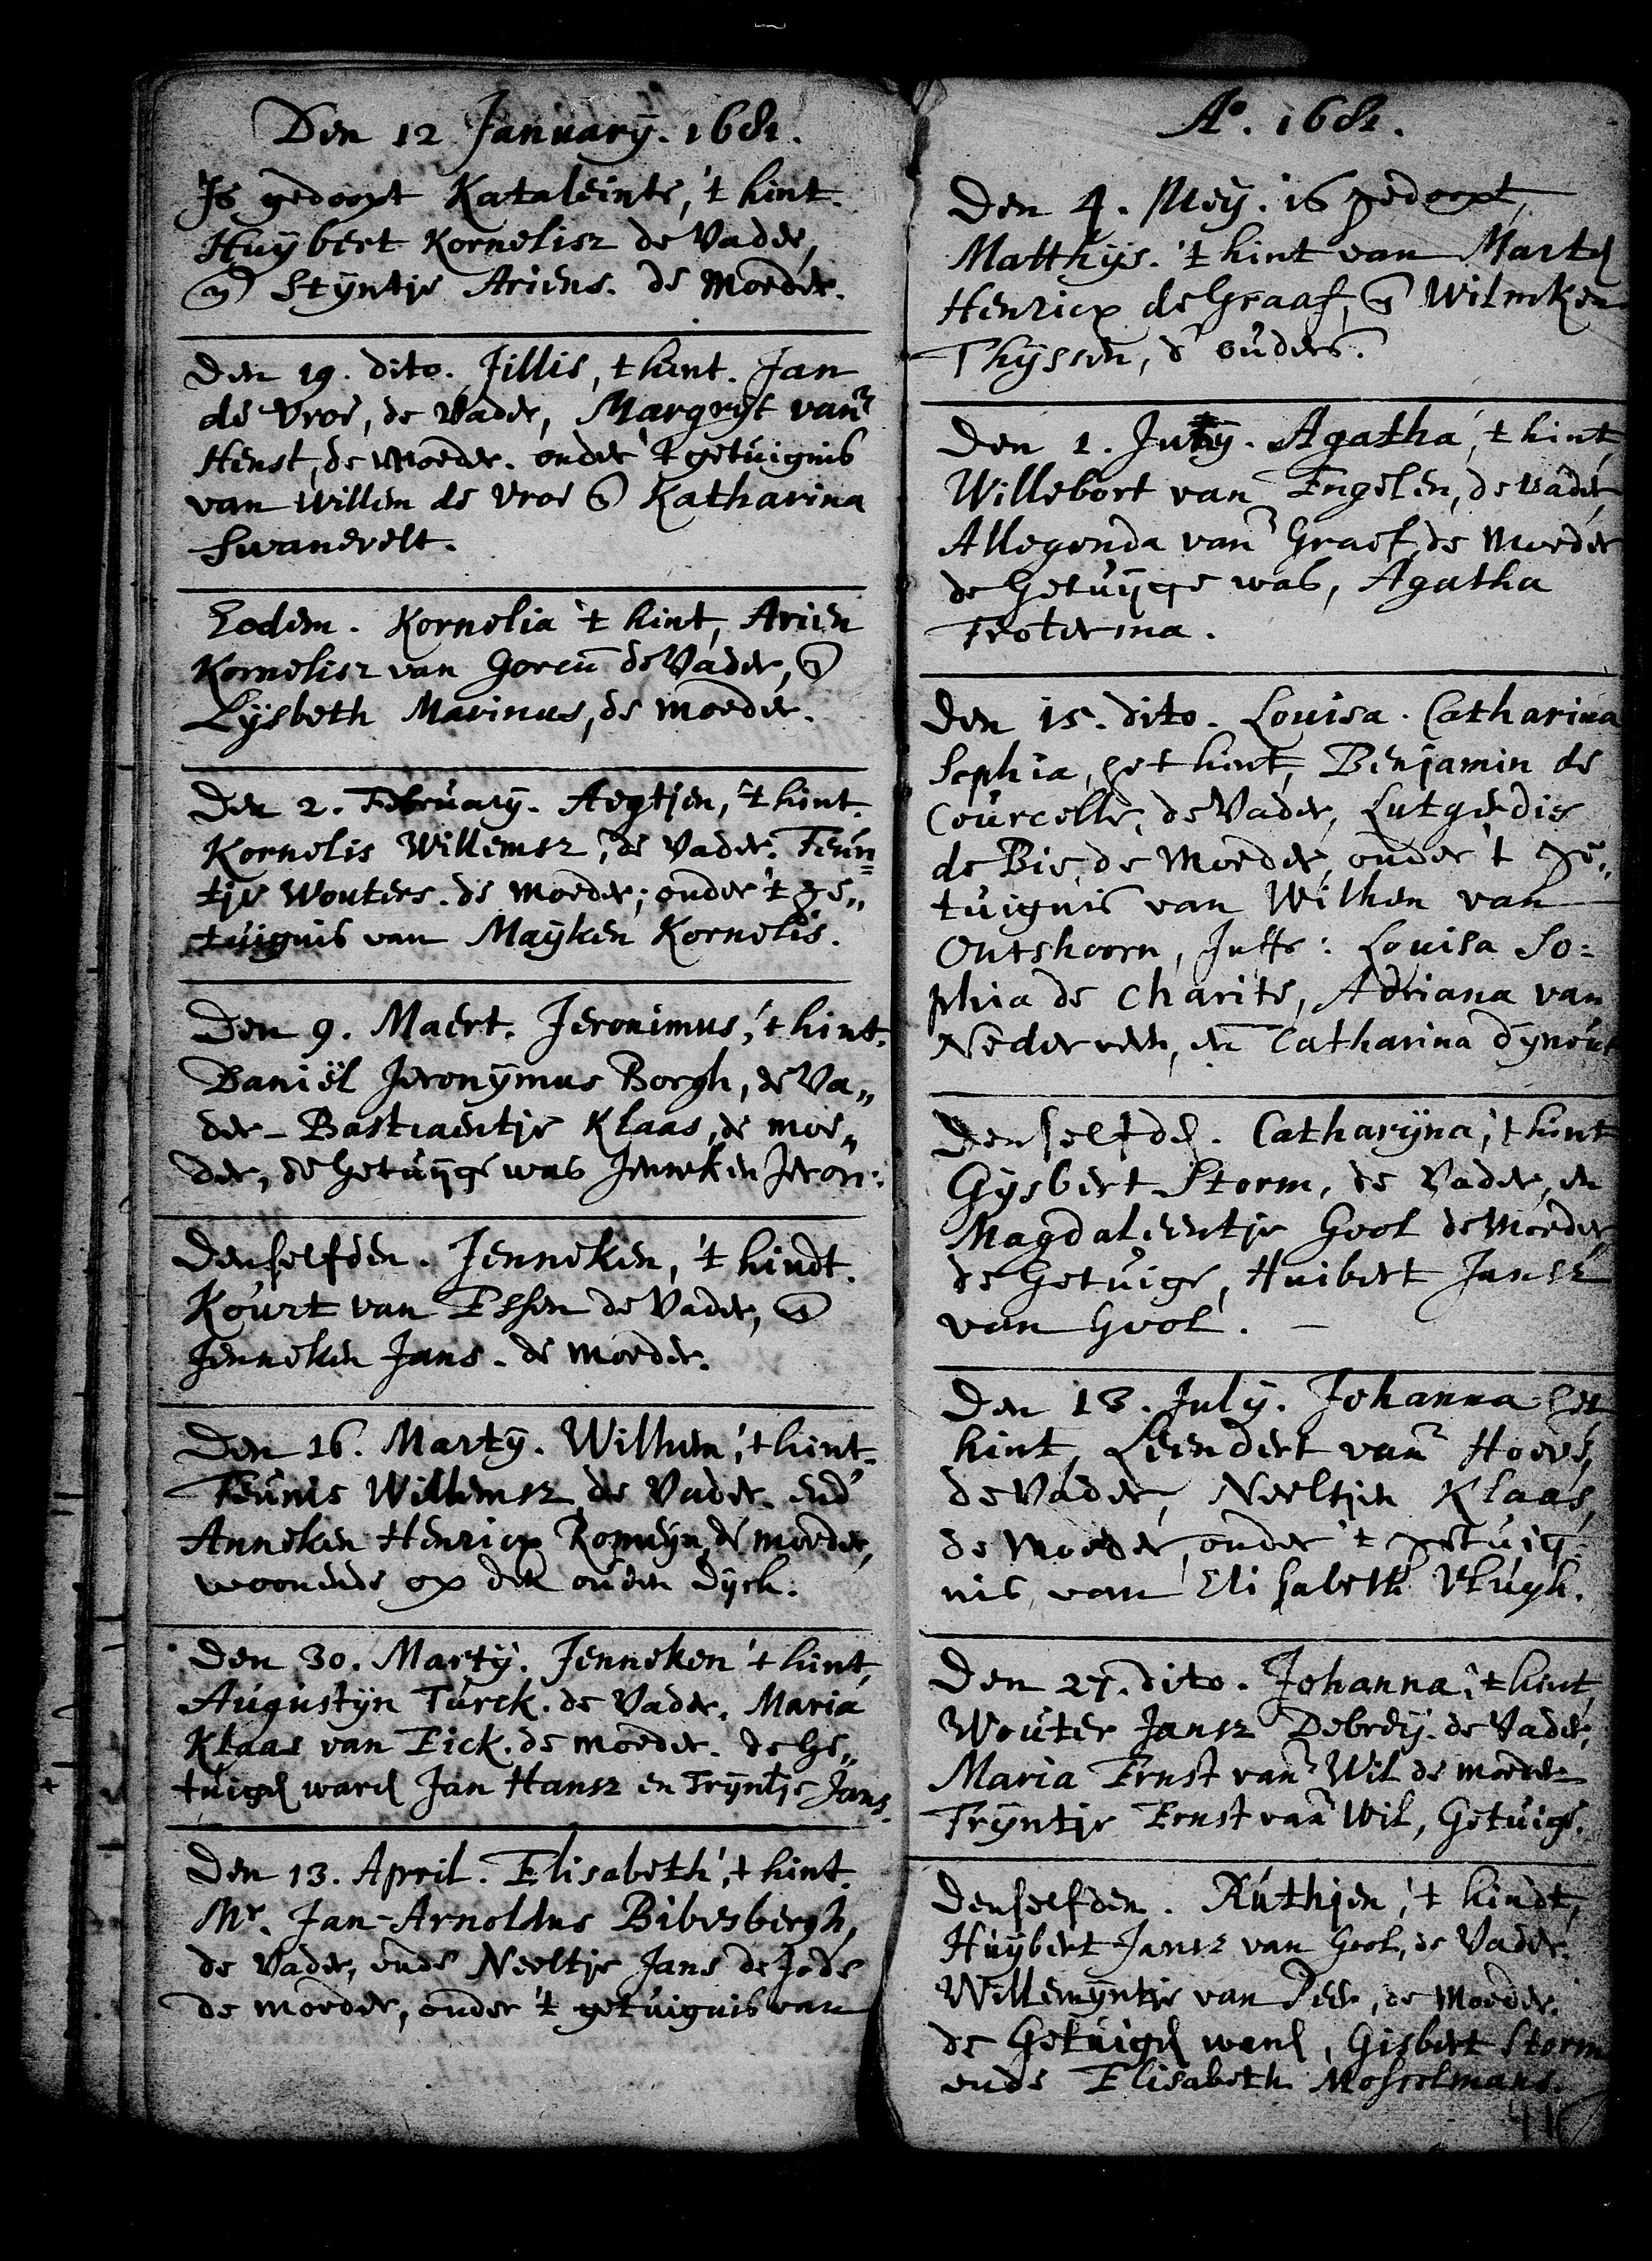 Den 12 January. 1681.
Is gedoopt Kataleinte, 't kint.
Huybert Kornelisz de Vader,
en Styntje Ariens. de Moeder.
Den 19. dito. Jillis, t kint. Jan
de Vroe, de Vader, Margryt van
Henst, de Moeder. onder 't getuignis
van Willem de Vroe en Katharina
Swanevelt.
Eodem. Kornelia 't kint, Arien
Kornelisz van Gorcũ de Vader, en
Lysbeth Marinus, de moeder.
Den 2. February. Aegtjen, 't kint.
Kornelis Willemsz, de Vader. Teun=
tje Wouters. de Moeder; onder 't ge„
tuignis van Mayken Kornelis.
Den 9. Maert. Jeronimus, 't kint.
Daniël Jeronymus Borgh, de Va„
der - Bastiaentje Klaas, de moe„
der, de Getuijge was Jenneken Jeron:
Denselfden. Jenneken, 't kindt.
Kourt van Essen de Vader, en
Jenneken Jans. de Moeder.
Den 16. Marty. Wilhem, 't kint.
Teunis Willemsz de Vader. end
Anneken Henricx Romeyn, de moeder,
woonende op den ouden dyck.
Den 30. Marty. Jenneken 't kint,
Augustyn Turck. de Vader. Maria
Klaas van Eick. de moeder. de Ge„
tuigen waren Jan Hansz en Tryntje Jans.
Den 13. April. Elisabeth, 't kint.
Mr. Jan-Arnoldus Bibesbergh,
de Vader, ende Neeltje Jans de Jode
de moeder, onder 't getuignis van
Ao. 1681.
Den 4. Mey. is gedoopt,
Matthys. 't kint van Marten
Henricx de Graaf, en Wilmken
Thyssen, d' ouders.
Den 1. Juny. Agatha, 't kint,
Willebort van Engelen, de Vader,
Allegonda van Graef, de Moeder
de Getuijge was, Agatha
Froterma.
Den 15. dito. Louisa. Catharina
Sophia, het kint, Benjamin de
Courcelle, de Vader, Lutgerdis
de Bie, de Moeder, onder 't ge„
tuignis van Wilhem van
Outshoorn, Juffr: Louisa So=
phia de Charite, Adriana van
Nederveen, en Catharina dyneut
Denselfden. Catharyna, 't kint
Gysbert Storm, de Vader, en
Magdaleentje Gool de Moeder
de Getuige, Huibert Jansz
van Gool. —
Den 13. July. Johanna het
kint, Leendert van Hoeve,
de Vader, Neeltjen Klaas,
de Moeder, onder 't getuig=
nis, van Elisabeth Vlugh.
Den 27. dito. Johanna, 't kint,
Wouter Jansz Debrey. de Vader,
Maria Ernst van Wil de moeder
Tryntje Ernst van Wil, Getuige.
Denselfden. Ruthjen, 't kindt,
Huybert Jansz van Gool, de Vader.
Willemyntje van Peer, de Moeder.
de Getuigen waren, Gisbert Storm
ende Elisabeth Mosselmans.
41